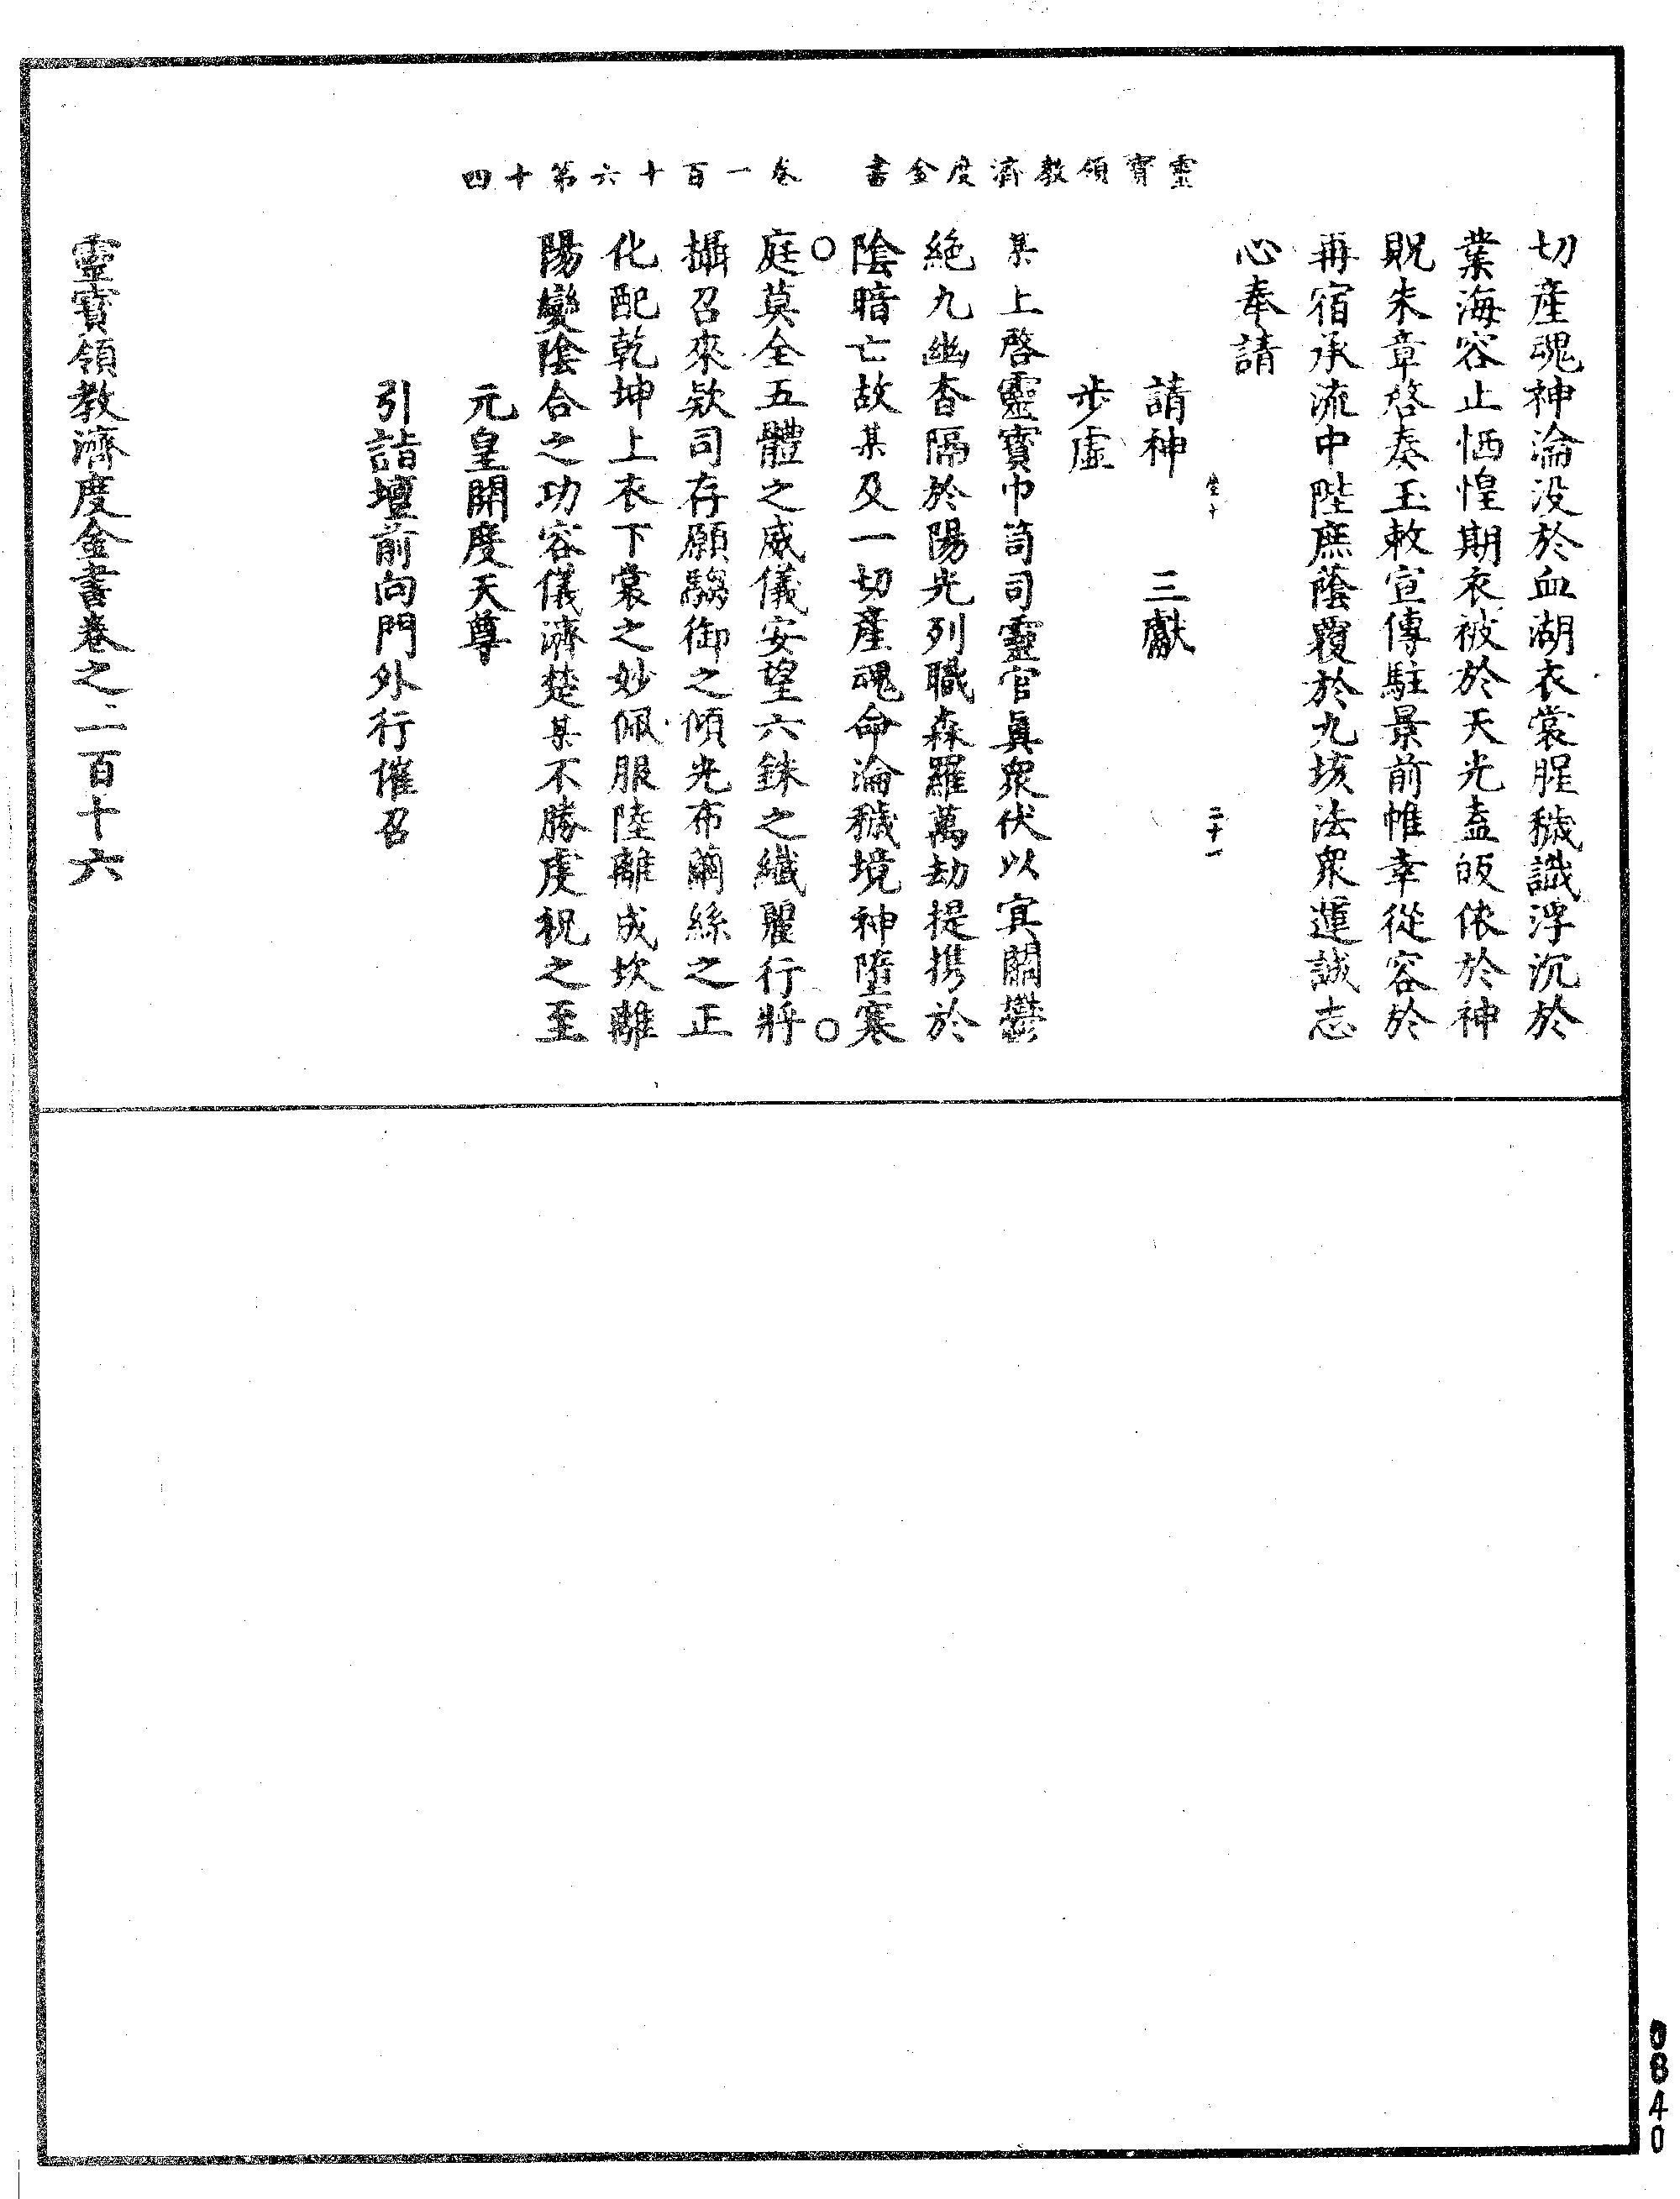 靈寶領教濟度金書　卷一百十六第十四
切產魂神淪没於血湖衣裳腥穢識浮沉於
業海容止恓惶期衣被於天光盍皈依於神
貺朱章啓奏玉敕宣傳駐景前帷幸從容於
再宿承流中陛庶蔭覆於九垓法衆運誠志
心奉請
二十一
請神　三獻
步虛
某上啓靈寶巾笥司靈官眞衆伏以㝠關鬱
絶九幽杳隔於陽光列職森羅萬劫提携於
隂暗亡故某及一切產魂命淪穢境神墮寒
庭莫全五體之威儀安望六銖之纖麗行將
攝召來欵司存願驂御之傾光布繭絲之正
化配乾坤上衣下裳之妙佩服陸離成坎離
陽變隂合之功容儀濟楚某不勝虔祝之至
元皇開度天尊
引詣壇前向門外行催召
靈寶領教濟度金書卷之一百十六
0840